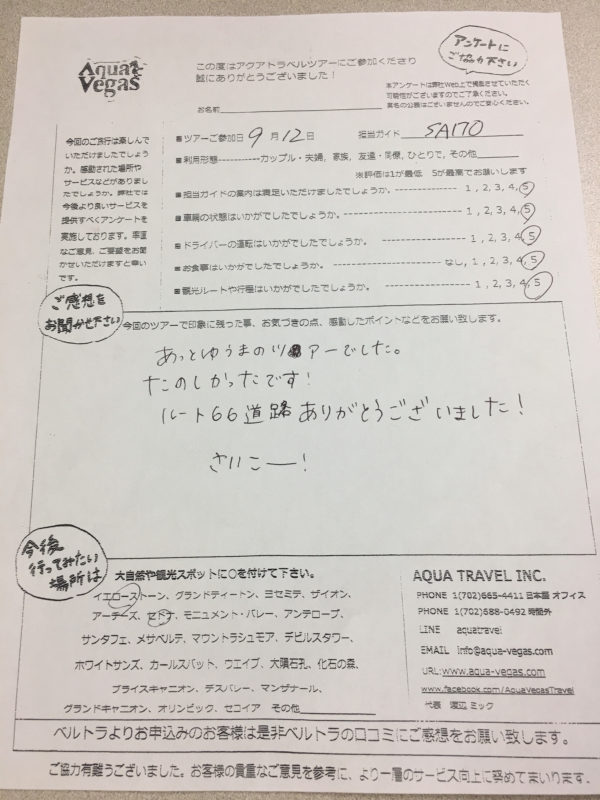 Aqua Vegas
この度はアクアトラベルツアーにご参加くださり
誠にありがとうございました！
アンケートに
ご協力下さい
本アンケートは弊社Web上で掲載させていただく
可能性がございますのでご了承ください。
実名の公表はございませんのでご安心ください。
お名前
今回のご旅行は楽しんで
いただけましたでしょう
か。感動された場所や
サービスなどがありまし
たでしょうか。弊社では
今後より良いサービスを
提供すべくアンケートを
実施しております。率直
なご意見、ご要望をお聞
かせいただけますと幸い
です。
■ツアーご参加日 9月12日 担当ガイド SAITO
■利用形態-----------カップル・夫婦, 家族, 友達・同僚, ひとりで, その他
※評価は1が最低 5が最高でお願いします
■担当ガイドの案内は満足いただけましたでしょうか。 ------------ 1, 2, 3, 4, 5
■車輌の状態はいかがでしたでしょうか。 ------------------------ 1, 2, 3, 4, 5
■ドライバーの運転はいかがでしたでしょうか。 ------------------ 1, 2, 3, 4, 5
■お食事はいかがでしたでしょうか。 ---------------------- なし, 1, 2, 3, 4, 5
■観光ルートや行程はいかがでしたでしょうか。 ------------------ 1, 2, 3, 4, 5
ご感想を
お聞かせ下さい
今回のツアーで印象に残った事、お気づきの点、感動したポイントなどをお願い致します。
あっとゆうまのツアーでした。
たのしかったです！
ルート66道路ありがとうございました！
さいこー！
今後
行ってみたい
場所は
大自然や観光スポットに○を付けて下さい。
イエローストーン、グランドティートン、ヨセミテ、ザイオン、
アーチーズ、セドナ、モニュメント・バレー、アンテロープ、
サンタフェ、メサベルテ、マウントラシュモア、デビルスタワー、
ホワイトサンズ、カールスバット、ウエイブ、大隕石孔、化石の森、
ブライスキャニオン、デスバレー、マンザナール、
グランドキャニオン、オリンピック、セコイア その他
AQUA TRAVEL INC.
PHONE 1(702)665-4411 日本語 オフィス
PHONE 1(702)688-0492 時間外
LINE aquatravel
EMAIL info@aqua-vegas.com
URL:www.aqua-vegas.com
www.facebook.com/AquaVegasTravel
代表 渡辺 ミック
ベルトラよりお申込みのお客様は是非ベルトラの口コミにご感想をお願い致します。
ご協力有難うございました。お客様の貴重なご意見を参考に、より一層のサービス向上に努めてまいります。